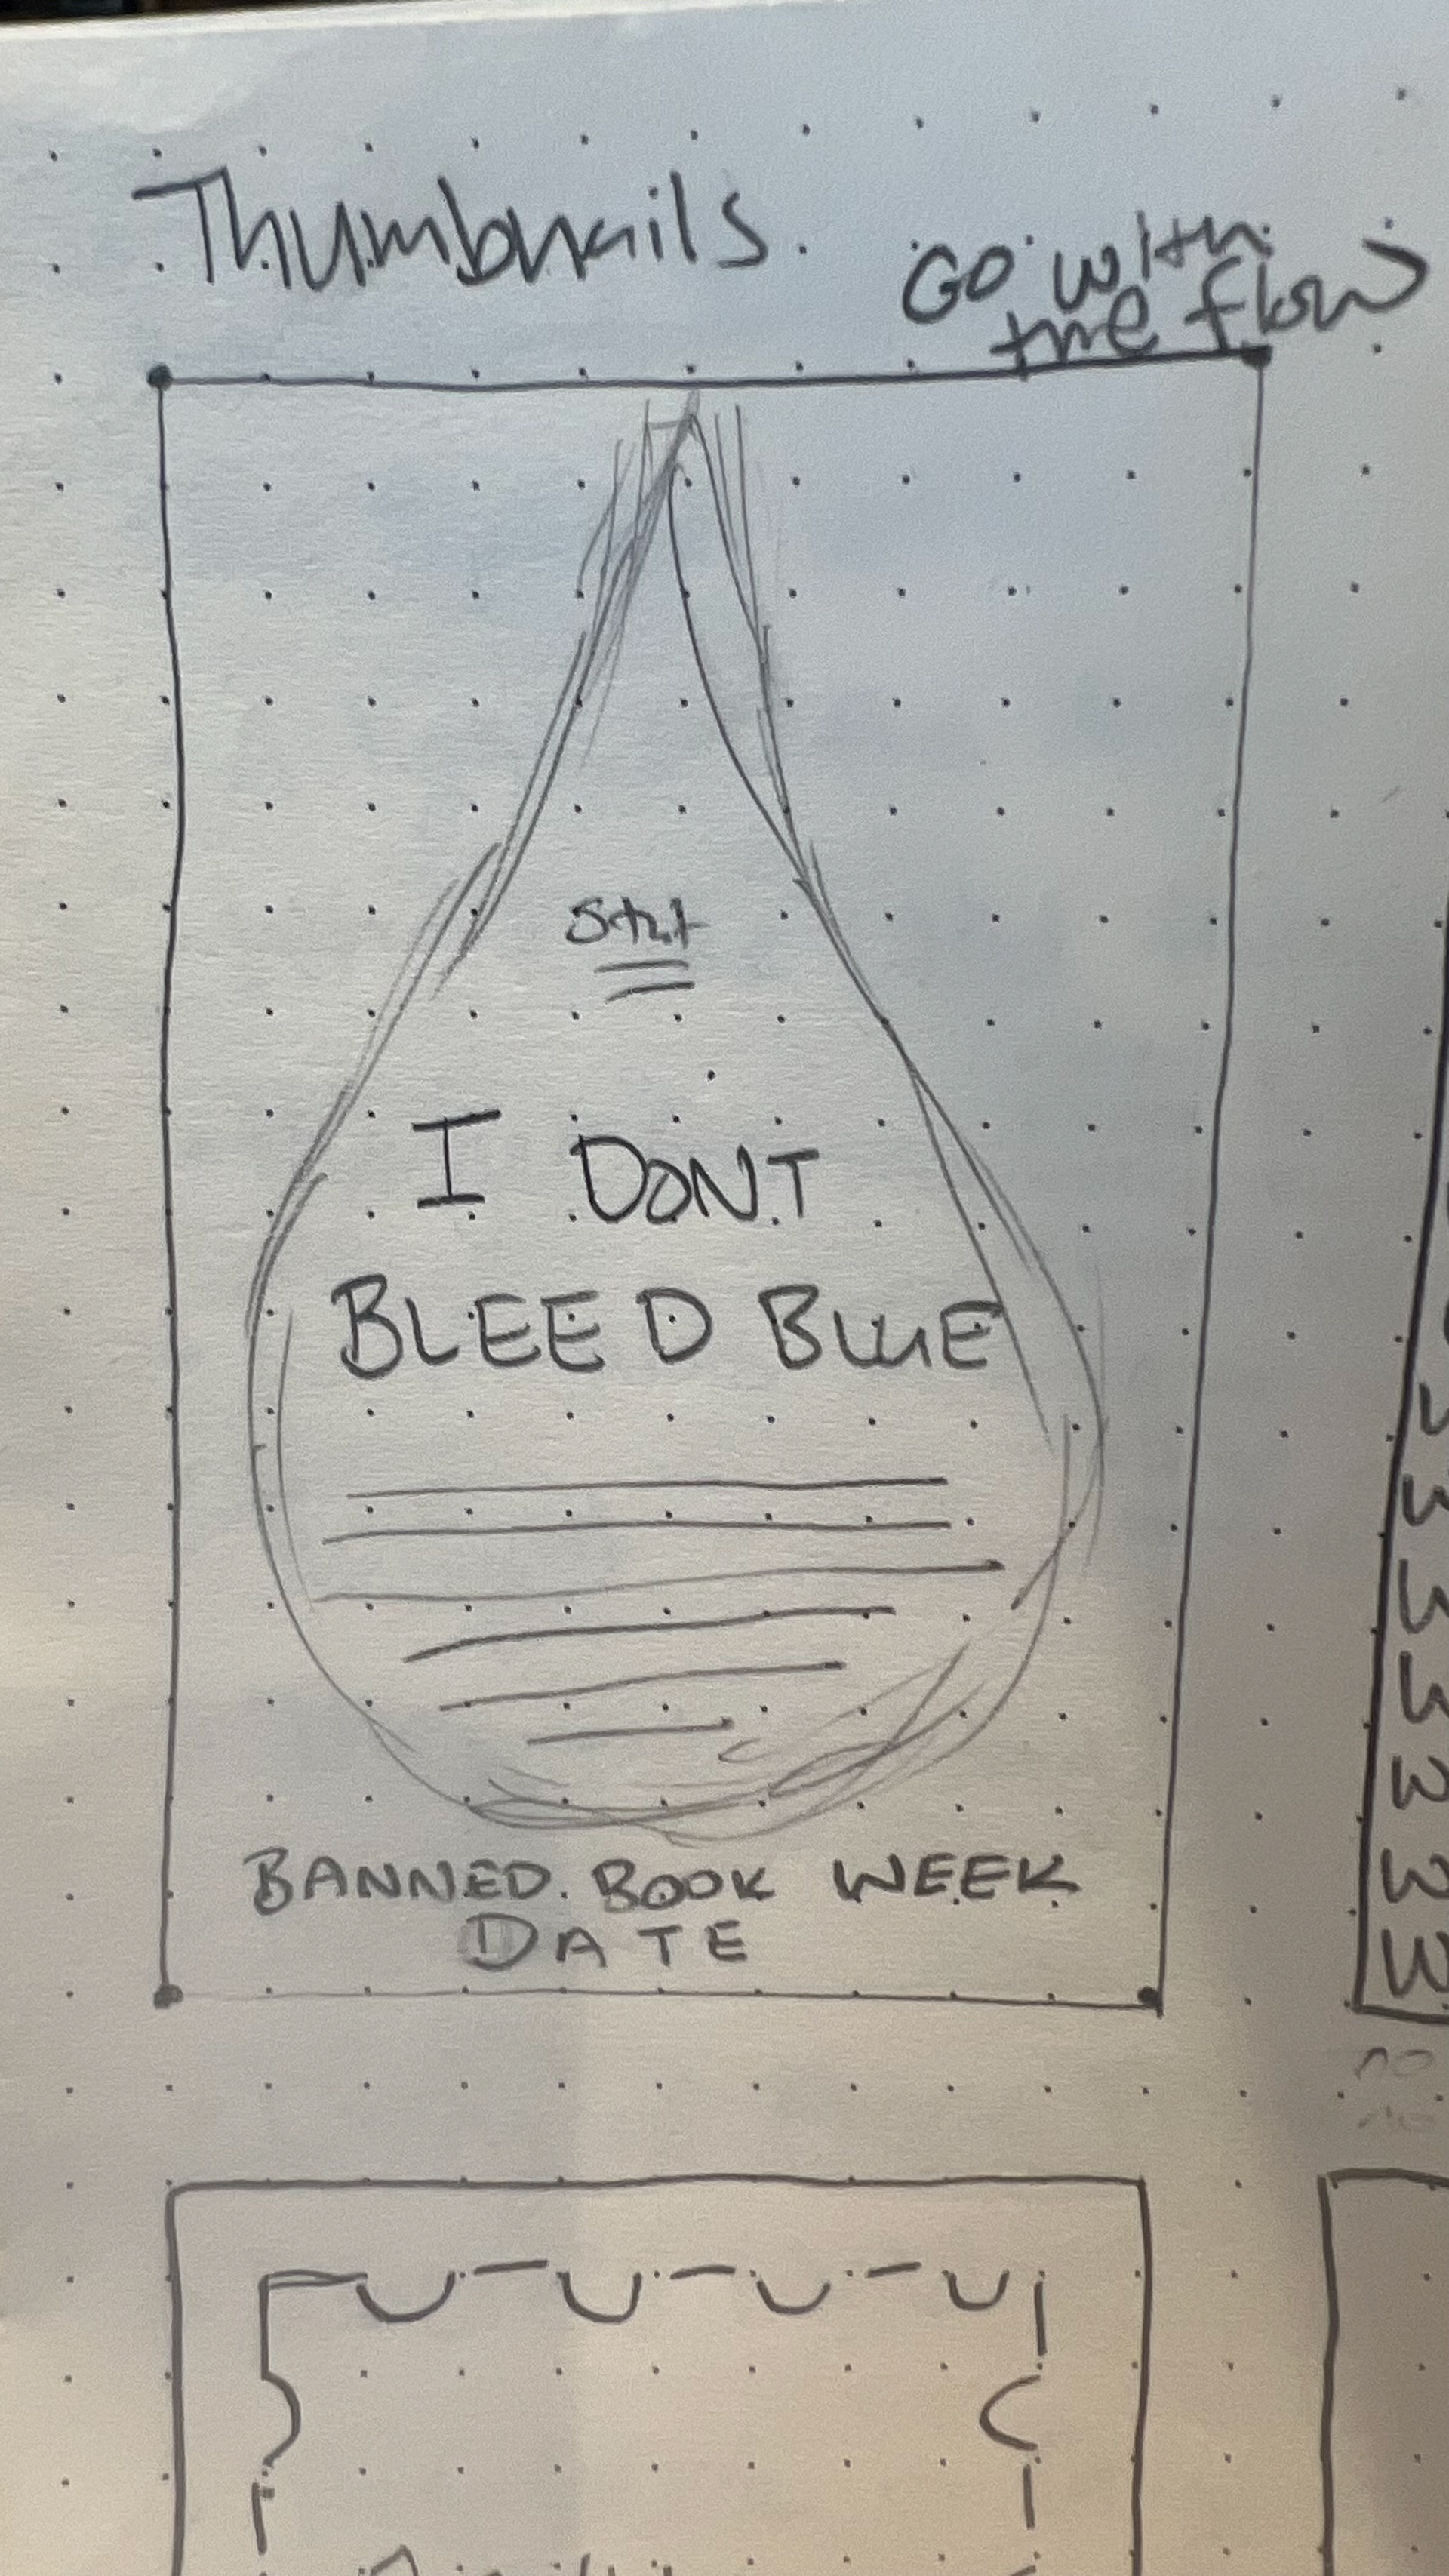 Thumbnails.
Go with
the flow
I DONT
BLEED BLUE
BANNED BOOK WEEK
DATE
no